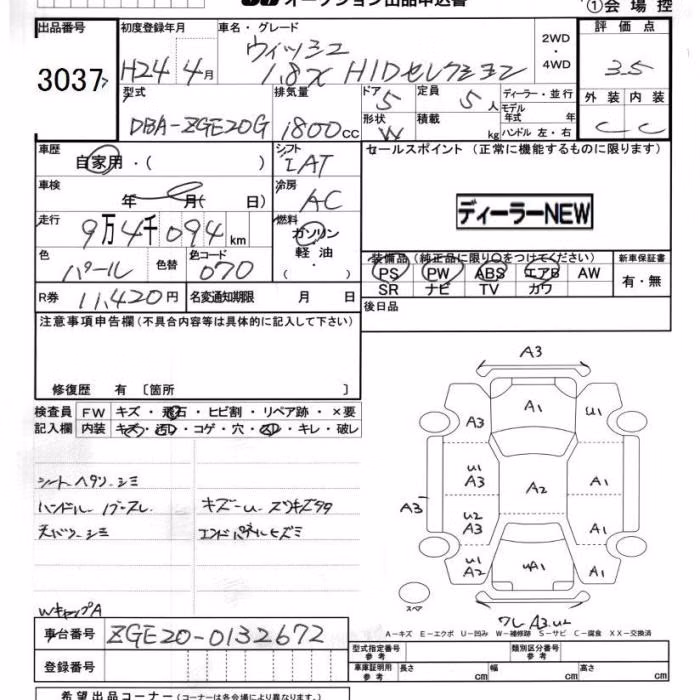 オークション出品申込書
①会場控
出品番号
初度登録年月
車名・グレード
評価点
3037
H24年4月
ウィッシュ
1.8X HIDセレクション
2WD
・
4WD
3.5
型式
排気量
ドア
定員
ディーラー・並行
外装 内装
DBA-ZGE20G
1800cc
5
5人
モデル年式 年
C C
形状
W
積載 kg
ハンドル 左・右
車歴
自家用・( )
シフト
IAT
セールスポイント (正常に機能するものに限ります)
車検
年 月( 日)
冷房
AC
ディーラーNEW
走行
9万4千094km
燃料
ガソリン
軽油
・( ・ )
色
パール
色替
色コード
070
装備品(純正品に限り○をつけてください)
新車保証書
PS PW ABS エアB AW
SR ナビ TV カワ
有・無
R券 11,420円
名変通知期限 月 日
後日品
注意事項申告欄(不具合内容等は具体的に記入して下さい)
修復歴 有 〔箇所 〕
検査員
記入欄
FW キズ・飛石・ヒビ割・リペア跡・×要
内装 キズ・汚レ・コゲ・穴・・キレ・破レ
シートヘタリ シミ
ハンドル
天バリ シミ
キズ
エンドパネルヒズミ
A3
A3
A1
U1
U1
A3
A2
A1
A3
U2
A3
A1
U1
A2
A1
A1
スペア
A3 U2
WキャップA
A-キズ E-エクボ U-凹み W-補修跡 S-サビ C-腐食 XX-交換済
車台番号
ZGE20-0132672
型式指定番号
参考
類別区分番号
参考
登録番号
車庫証明用
参考
長さ cm
幅 cm
高さ cm
希望出品コーナー(コーナーは各会場により異なります)